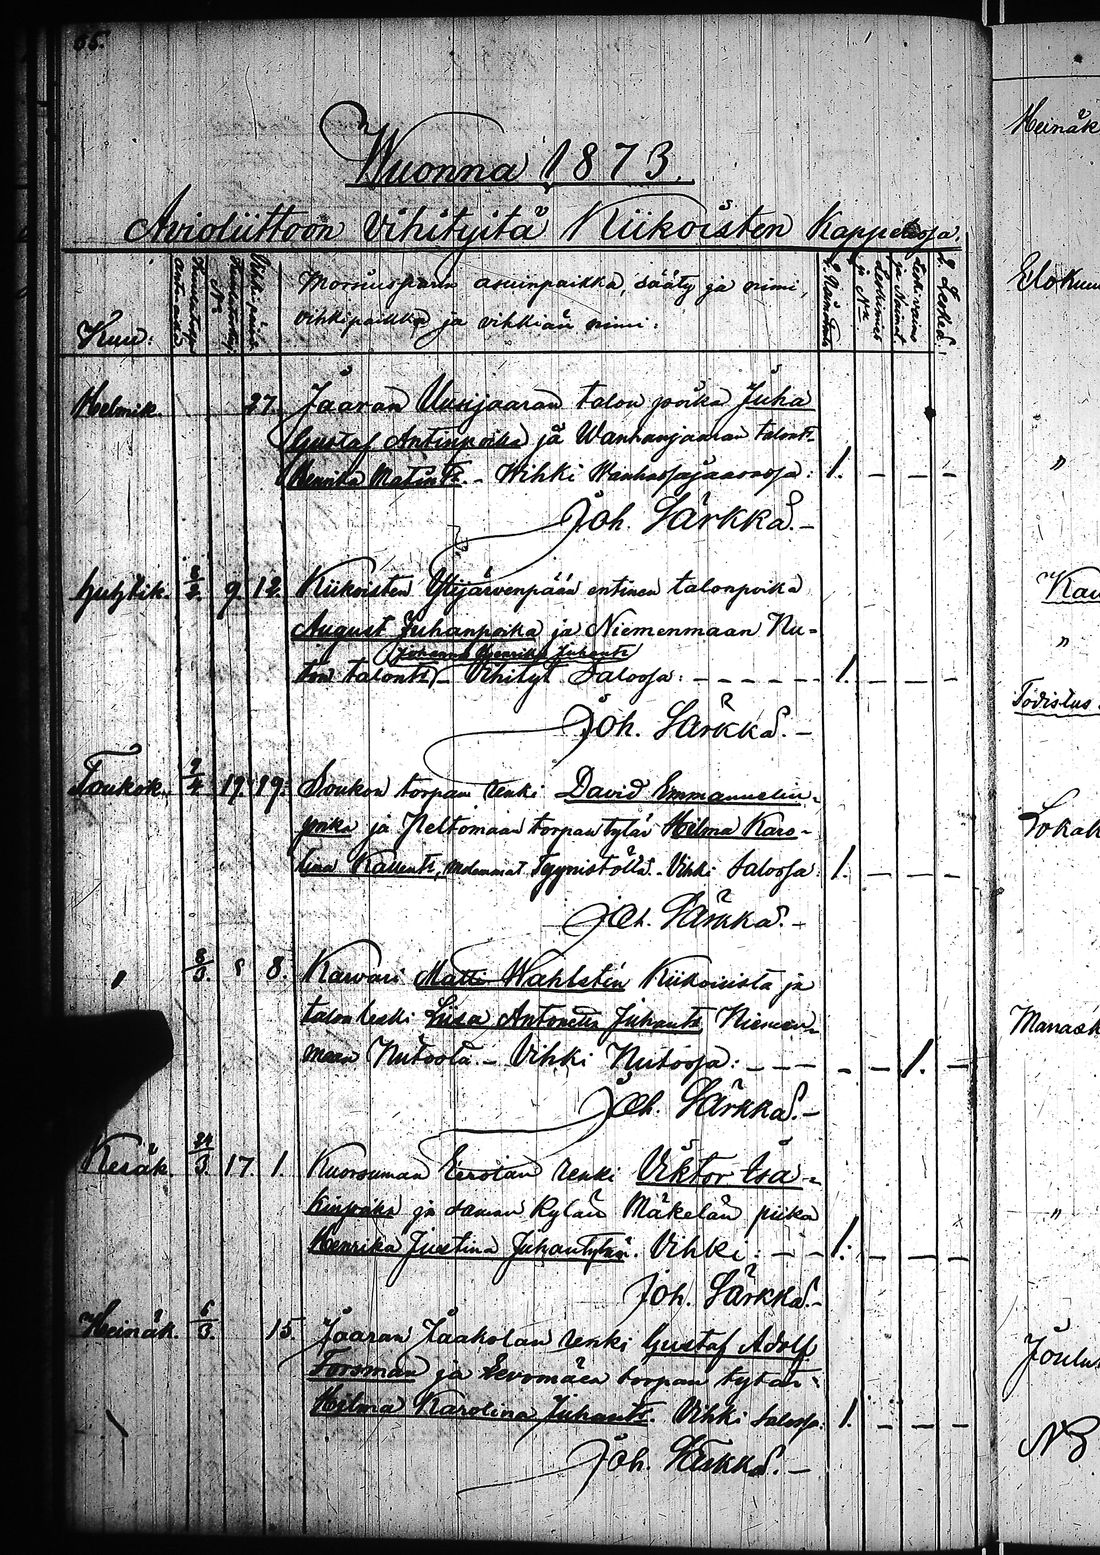 65.
Wuonna 1873.
Avioliittoon Vihityitä Kiikoisten Kappelissa.
Kuu:
Morsiusparin asuinpaikka, sääty ja nimi,
vihkipaikka ja vihkiän nimi:
2. Leskeä.
Helmik. 27. Jaaran Uusijaaran talon poika Juha
Gustaf Antinpoika ja Wanhanjaaran talont.
Henrika Matint. - Vihki Wanhassajaarassa: 1. - - -
Joh. Särkkä. -
Huhtik. 9 12. Kiikoisten Ylijärvenpään entinen talonpoika
August Juhanpoika ja Niemenmaan Nu-
Johanna Henrika Juhant.
ton talont. - Vihityt Salossa: - - - - - - 1. - - -
Joh. Särkkä. -
Toukok. 19. 19. Soukon torpan renki David Emmanuelin-
poika ja Peltomaan torpan tytär Hilma Karo-
lina Kallent., molemmat Tyynistöltä. - Vihki Salossa: 1. - - -
Joh. Särkkä. -
" 8/3. 8 8. Karvari Matti Wahlstén Kiikoisista ja
talon leski Liisa Antonetta Juhant. Niemen-
maan Nutosta. - Vihki Nutossa: - - - - - 1. -
Joh. Särkkä. -
Kesäk. 24/3. 17. 1. Kuorsuman Eerolan renki Viktor Isa-
kinpoika ja saman kylän Mäkelän piika
Henrika Justina Juhantytär. Vihki: - - 1. - - -
Joh. Särkkä. -
Heinäk. 6/3. 15. Jaaran Jaakolan renki Gustaf Adolf
Forsman ja Levomäen torpan tytär
Hilma Karolina Juhant. Vihki Salossa: 1. - - -
Joh. Särkkä. -
Heinäk
Elokuu
"
Kau
"
Todistus.
Lokak
Marrask
"
Joulu
NB